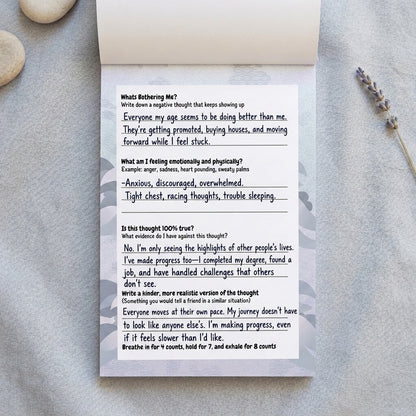 Whats Bothering Me?
Write down a negative thought that keeps showing up
Everyone my age seems to be doing better than me.
They're getting promoted, buying houses, and moving
forward while I feel stuck.
What am I feeling emotionally and physically?
Example: anger, sadness, heart pounding, sweaty palms
-Anxious, discouraged, overwhelmed.
Tight chest, racing thoughts, trouble sleeping.
Is this thought 100% true?
What evidence do I have against this thought?
No. I'm only seeing the highlights of other people's lives.
I've made progress too—I completed my degree, found a
job, and have handled challenges that others
don't see.
Write a kinder, more realistic version of the thought
(Something you would tell a friend in a similar situation)
Everyone moves at their own pace. My journey doesn't have
to look like anyone else's. I'm making progress, even
if it feels slower than I'd like.
Breathe in for 4 counts, hold for 7, and exhale for 8 counts